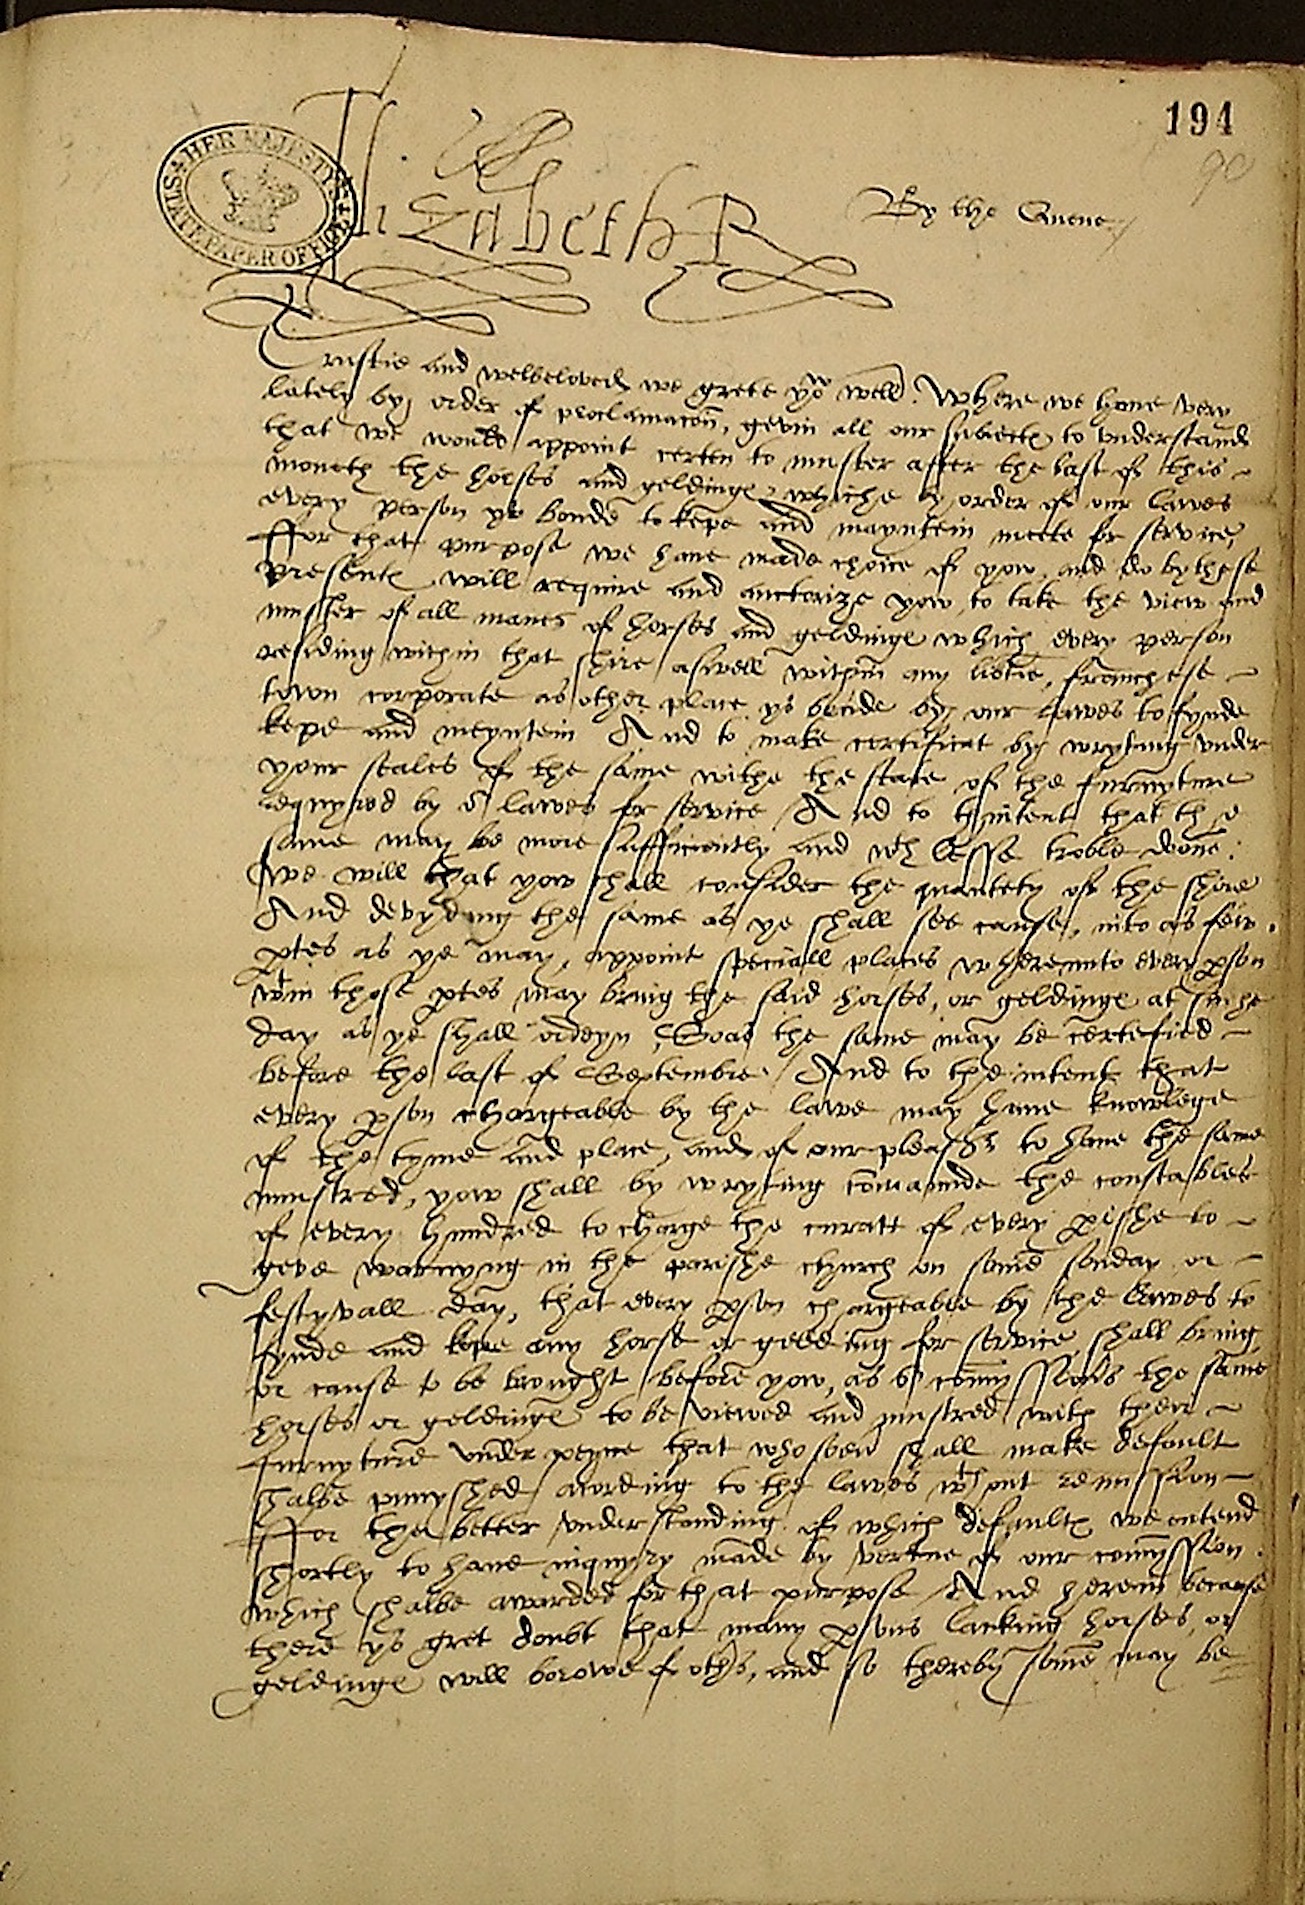 194
90
HER MAJESTY'S STATE PAPER OFFICE
Elizabeth R
By the Quene
Trustie and welbeloved we grete yow well. Where we have very
lately by order of proclamacon, gevin all our subiectes to understande
that we would appoint certen to muster after the last of this
moneth the horses and geldinges whiche by order of our lawes
every person ys bonde to kepe and mayntein meete for service,
ffor that purpose we have made choice of yow, and do by these
presentes will require and auctorize yow to take the view and
muster of all maner of horses and geldinges which every person
residing within that shire aswell within any libtie, franchese
town corporate as other place ys bounde by our lawes to fynde
kepe and meyntein And to make certificat by wryting under
your seales of the same withe the state of the furnyture
requyred by or lawes for service And to thintent that the
same may be more sufficiently and wth lesse troble done.
We will that yow shall consider the quantety of the shire
And devyding the same as ye shall see cause, into as few
ptes as ye may, appoint speciall places whereunto every pson
wtin those ptes may bring the said horses, or geldinges at suche
day as ye shall ordeyn, So as the same may be certefied
before the last of Septembre And to the intent that
every pson chargeable by the lawe may have knowlege
of the tyme and place, and of our pleasr to have the same
mustred, yow shall by wryting comaunde the constables
of every hundred to charge the curatt of every pishe to
geve warnyng in the parishe church on some sonday or
festyvall day, that every pson chargeable by the lawes to
fynde and kepe any horse or gelding for service shall bring
or cause to be brought before yow, as or comyssionrs the same
horses or geldinges to be viewed and mustred with their
furnyture under peyne that whosoevr shall make default
shalbe punyshed acording to the lawes wthout remission
ffor the better understonding of which defaultes we entend
shortly to have inquyry made by vertue of our comyssion
which shalbe awarded for that purpose And herein because
there ys gret doubt that many psons lacking horses, or
geldinges will borowe of othrs, and so thereby some may be